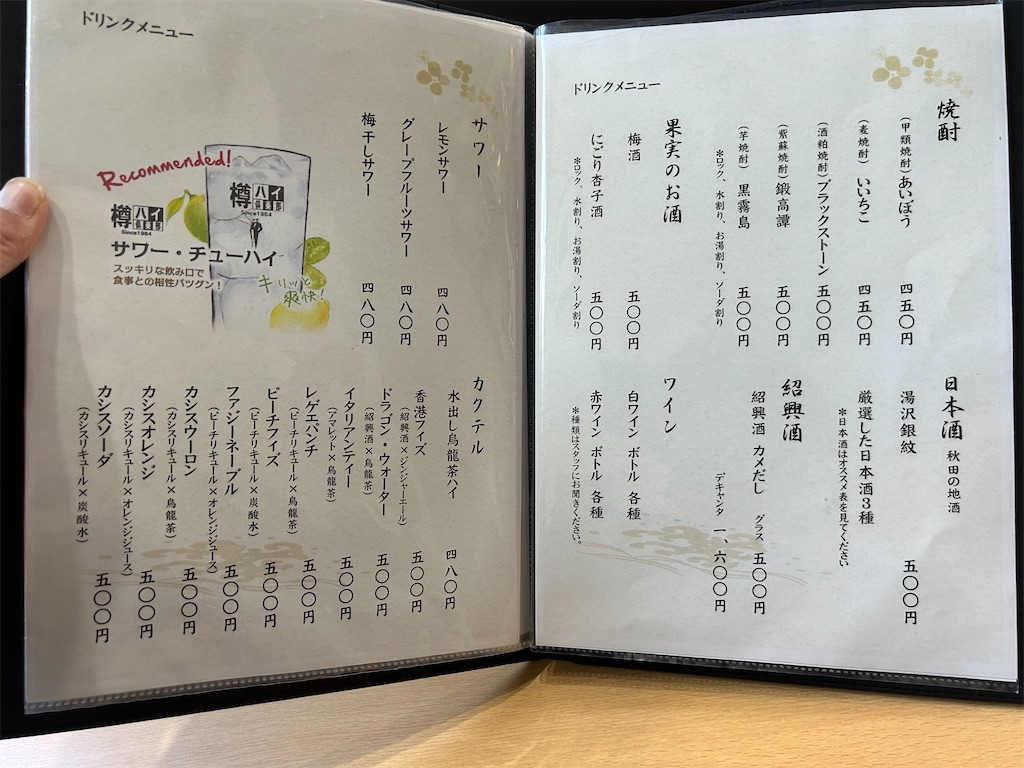 ドリンクメニュー
焼酎
(甲類焼酎) あいぼう 四五〇円
(麦焼酎) いいちこ 四五〇円
(酒粕焼酎) ブラックストーン 五〇〇円
(紫蘇焼酎) 鍛高譚 五〇〇円
(芋焼酎) 黒霧島 五〇〇円
*ロック、水割り、お湯割り、ソーダ割り
果実のお酒
梅酒 五〇〇円
にごり杏子酒 五〇〇円
*ロック、水割り、お湯割り、ソーダ割り
日本酒 秋田の地酒
湯沢銀紋 五〇〇円
厳選した日本酒3種
*日本酒はオススメ表を見てください
紹興酒
紹興酒 カメだし グラス 五〇〇円
デキャンタ 一、六〇〇円
ワイン
白ワイン ボトル 各種
赤ワイン ボトル 各種
*種類はスタッフにお聞きください。
ドリンクメニュー
サワー
レモンサワー 四八〇円
グレープフルーツサワー 四八〇円
梅干しサワー 四八〇円
Recommended!
樽ハイ倶楽部
Since1984
樽ハイ倶楽部
Since1984
サワー・チューハイ
スッキリな飲み口で
食事との相性バツグン!
キリッと
爽快!
カクテル
水出し烏龍茶ハイ 四八〇円
香港フィズ 五〇〇円
(紹興酒×ジンジャーエール)
ドラゴン・ウォーター 五〇〇円
(紹興酒×烏龍茶)
イタリアンティー 五〇〇円
(アマレット×烏龍茶)
レゲエパンチ 五〇〇円
(ピーチリキュール×烏龍茶)
ピーチフィズ 五〇〇円
(ピーチリキュール×炭酸水)
ファジーネーブル 五〇〇円
(ピーチリキュール×オレンジジュース)
カシスウーロン 五〇〇円
(カシスリキュール×烏龍茶)
カシスオレンジ 五〇〇円
(カシスリキュール×オレンジジュース)
カシスソーダ 五〇〇円
(カシスリキュール×炭酸水)